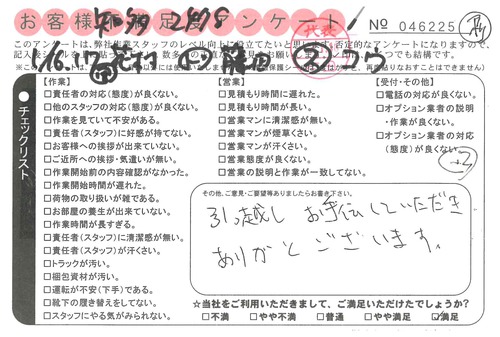 お客様満足度アンケート
代表
No 046225
このアンケートは、弊社作業スタッフのレベル向上に役立てたいと思います。否定的なアンケートになりますので、
チェックリスト
【作業】
□責任者の対応(態度)が良くない。
□他のスタッフの対応(態度)が良くない。
□作業を見ていて不安がある。
□責任者(スタッフ)に好感が持てない。
□お客様への挨拶が出来ていない。
□ご近所への挨拶・気遣いが無い。
□作業開始前の内容確認がなかった。
□作業開始時間が遅れた。
□荷物の取り扱いが雑である。
□お部屋の養生が出来ていない。
□作業時間が長すぎる。
□責任者(スタッフ)に清潔感が無い。
□責任者(スタッフ)が汗くさい。
□トラックが汚い。
□梱包資材が汚い。
□運転が不安(下手)である。
□靴下の履き替えをしてない。
□スタッフにやる気がみられない。
【営業】
□見積もり時間に遅れた。
□見積もり時間が長い。
□営業マンに清潔感が無い。
□営業マンが煙草くさい。
□営業マンが汗くさい。
□営業態度が良くない。
□営業の説明と作業が一致してない。
【受付・その他】
□電話の対応が良くない。
□オプション業者の説明
・作業が良くない。
□オプション業者の対応
(態度)が良くない。
その他、ご意見・ご要望等ありましたらお書き下さい。
引っ越し お手伝していただき
ありがとございます。
☆当社をご利用いただきまして、ご満足いただけたでしょうか?
□不満 □やや不満 □普通 □やや満足 ☑満足